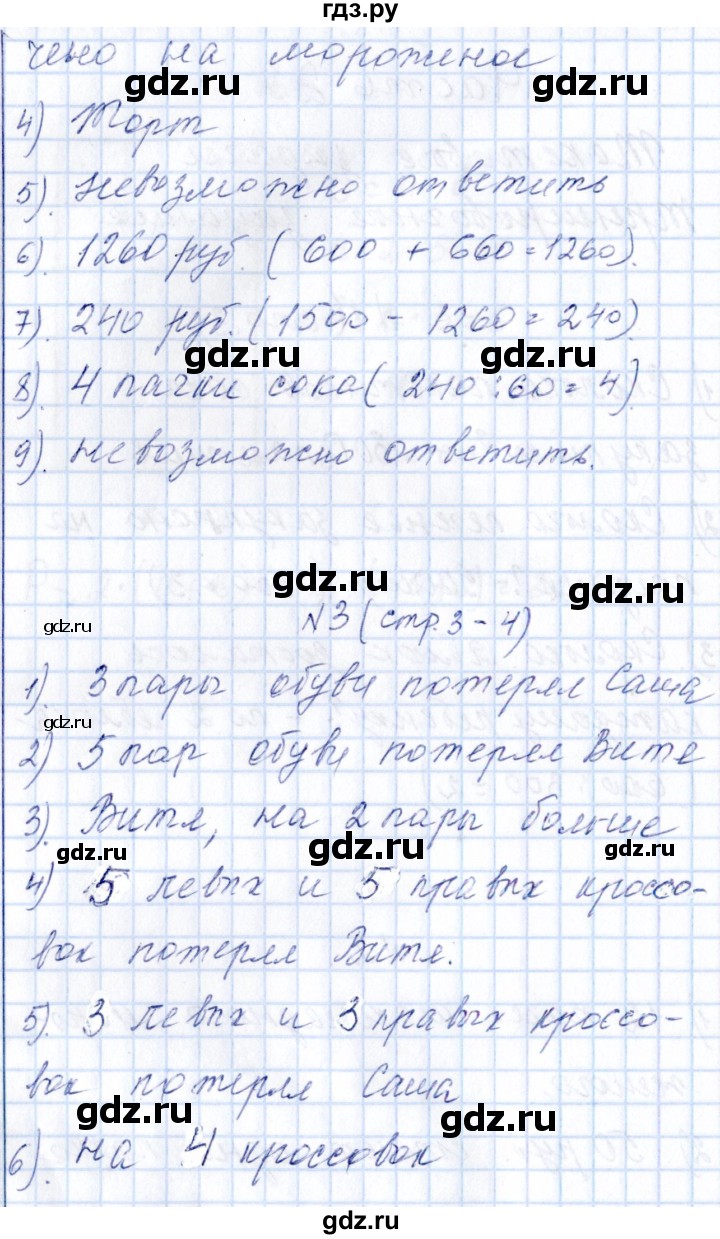 гдз.ру
чено на мороженое
gdz.ru gdz.ru
4) Торт
5). невозможно ответить
6). 1260 руб. (600 + 660=1260).
gdz.ru gdz.ru
7). 240 руб. (1500 - 1260=240).
gdz.ru gdz.ru
8). 4 пачки сока (240:60=4).
9). невозможно ответить.
gdz.ru gdz.ru
gdz.ru №3 (стр.3-4)
1). 3 пары обуви потерял Саша
gdz.ru gdz.ru
2) 5 пар обуви потерял Витя
3). Витя, на 2 пары больше
gdz.ru gdz.ru gdz.ru
4) 5 левых и 5 правых кроссо-
вок потерял Витя.
gdz.ru gdz.ru
5). 3 левых и 3 правых кроссо-
вок потерял Саша
gdz.ru gdz.ru
6). на 4 кроссовок
gdz.ru